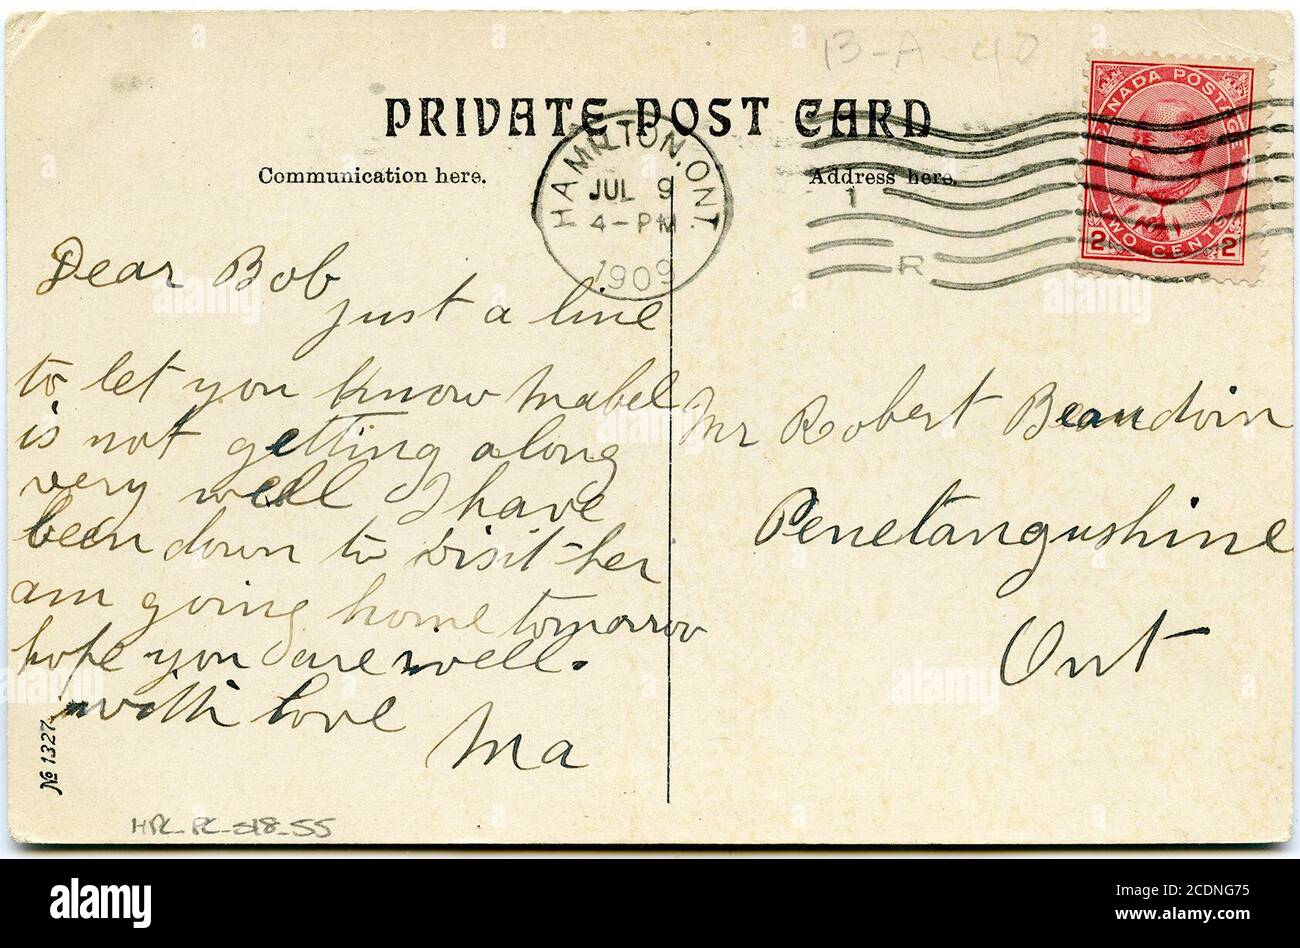 B-A-40
PRIVATE POST CARD
CANADA POSTAGE
2 TWO CENTS 2
HAMILTON. ONT.
JUL 9
4-PM
1909
1
R
Communication here.
Address here.
Dear Bob
just a line
to let you know Mabel
is not getting along
very well I have
been down to visit her
am going home tomorrow
hope you are well.
with love
Ma
Mr Robert Beaudoin
Penetangushine
Ont
№ 1327
HPL_PC_518_55
alamy
Image ID: 2CDNG75
www.alamy.com